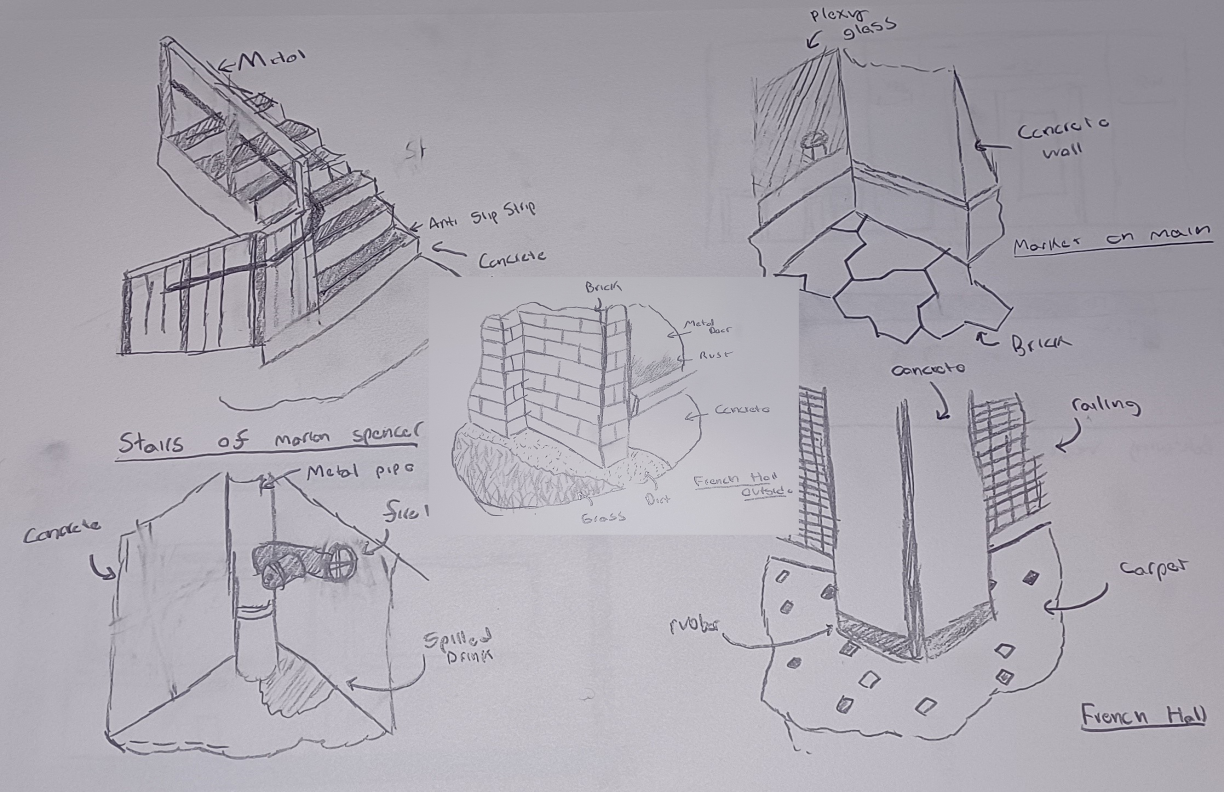 Metal
Anti Slip Strip
Concrete
Stairs of marion spencer
plexy
glass
Concrete
wall
Marker on main
Brick
Brick
Metal
Door
Rust
Concrete
French Hall
outside
Dirt
Grass
Concrete
Metal pipe
Spilled
Drink
concrete
railing
carpet
rubber
French Hall